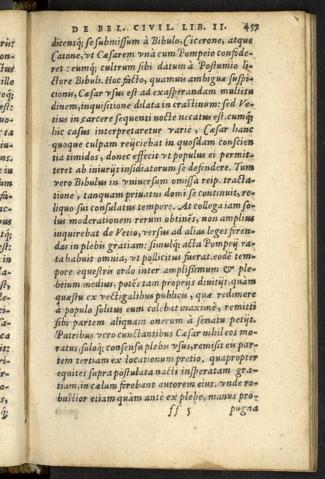 DE BEL. CIVIL. LIB. II. 457
dicensq; se submissum à Bibulo, Cicerone, atque
Catone, vt Cæsarem vnà cum Pompeio confode-
ret: eumq; cultrum sibi datum à Postumio li-
ctore Bibuli. Hoc facto, quamuis ambigua suspi-
cionis, Cæsar vsus est ad exasperandam multitu
dinem, inquisitione dilata in crastinum: sed Ve-
tius in carcere sequenti nocte necatus est. cumq;
hic casus interpretaretur varie, Cæsar hanc
quoque culpam reijciebat in quosdam conscien
tia timidos, donec effecit vt populus ei permit-
teret ab iniurijs insidiatorum se defendere. Tum
vero Bibulus in vniuersum omissa reip. tracta-
tione, tanquam priuatus domi se continuit, re-
liquo sui consulatus tempore. At collega iam so-
lus moderationem rerum obtinēs, non amplius
inquirebat de Vetio, versus ad alias leges feren-
das in plebis gratiam: simulq; acta Pompeij ra-
ta habuit omnia, vt pollicitus fuerat. eodē tem-
pore equestris ordo inter amplissimum & ple-
beium medius, potēs tam proprijs diuitijs, quàm
quæstu ex vectigalibus publicis, quæ redimere
à populo solitus cum eolebat maximè, remitti
sibi partem aliquam onerum à senatu petijt.
Patribus vero cunctantibus Cæsar nihil eos mo-
ratus, soloq; consensu plebis vsus, remisit eis par-
tem tertiam ex locationum pretio. quapropter
equites supra postulata nacti insperatam gra-
tiam, in cælum ferebant autorem eius. vnde ro-
bustior etiam quàm antè ex plebe, manus pro-
ſſ 5 pugna